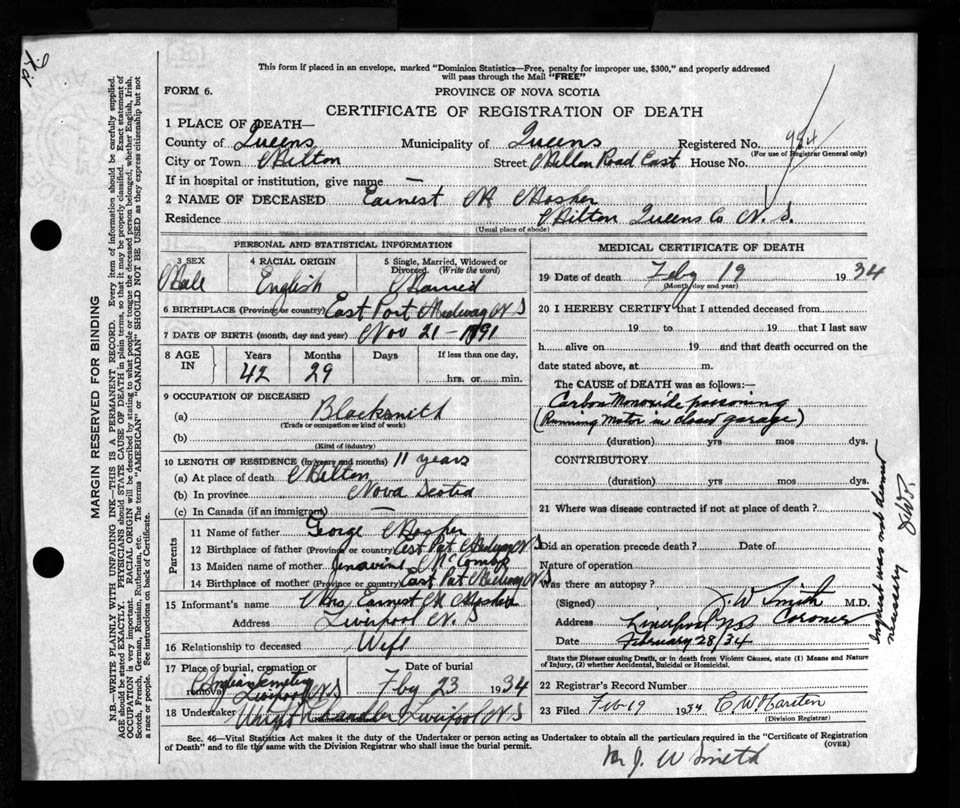 This form if placed in an envelope, marked "Dominion Statistics—Free, penalty for improper use, $300," and properly addressed
will pass through the Mail "FREE"
FORM 6.
PROVINCE OF NOVA SCOTIA
CERTIFICATE OF REGISTRATION OF DEATH
1 PLACE OF DEATH—
County of Queens Municipality of Queens Registered No.
(For use of Registrar General only)
City or Town Milton Street Milton Road East House No.
If in hospital or institution, give name —
2 NAME OF DECEASED Earnest M Mosher
Residence Milton Queens Co N. S.
(Usual place of abode)
PERSONAL AND STATISTICAL INFORMATION
3 SEX Male
4 RACIAL ORIGIN English
5 Single, Married, Widowed or Divorced. (Write the word) Married
6 BIRTHPLACE (Province or country) East Port Medway N S
7 DATE OF BIRTH (month, day and year) Nov 21 - 1891
8 AGE IN Years 42 Months 29 Days If less than one day, hrs. or min.
9 OCCUPATION OF DECEASED
(a) Blacksmith
(Trade or occupation or kind of work)
(b)
(Kind of industry)
10 LENGTH OF RESIDENCE (in years and months) 11 years
(a) At place of death Milton
(b) In province Nova Scotia
(c) In Canada (if an immigrant) —
Parents
11 Name of father George Mosher
12 Birthplace of father (Province or country) East Port Medway N S
13 Maiden name of mother
14 Birthplace of mother (Province or country) East Port Medway N S
15 Informant's name Mrs Earnest M Mosher
Address Liverpool N. S
16 Relationship to deceased Wife
17 Place of burial, cremation or removal Liverpool N S
Date of burial Feby 23 1934
18 Undertaker Wright Chandler Liverpool N S
MEDICAL CERTIFICATE OF DEATH
19 Date of death Feby 19 1934
(Month, day and year)
20 I HEREBY CERTIFY that I attended deceased from
19 to 19 that I last saw
h alive on 19 and that death occurred on the
date stated above, at m.
The CAUSE of DEATH was as follows:—
Carbon Monoxide poisoning
(Running motor in closed garage)
(duration) yrs mos dys.
CONTRIBUTORY
(duration) yrs mos dys.
21 Where was disease contracted if not at place of death?
Did an operation precede death? Date of
Nature of operation
Was there an autopsy?
(Signed) J. W Smith M.D.
Coroner
Address Liverpool NS
Date February 28/34
State the Disease causing Death, or in death from Violent Causes, state (1) Means and Nature
of Injury, (2) whether Accidental, Suicidal or Homicidal.
22 Registrar's Record Number
23 Filed Feb-19 1934
(Division Registrar)
Inquest was not deemed
necessary JWS
Sec. 46—Vital Statistics Act makes it the duty of the Undertaker or person acting as Undertaker to obtain all the particulars required in the "Certificate of Registration
of Death" and to file the same with the Division Registrar who shall issue the burial permit.
(OVER)
J. W Smith
MARGIN RESERVED FOR BINDING
N.B.—WRITE PLAINLY WITH UNFADING INK—THIS IS A PERMANENT RECORD. Every item of information should be carefully supplied.
AGE should be stated EXACTLY. PHYSICIANS should STATE CAUSE OF DEATH in plain terms, so that it may be properly classified. Exact statement of
OCCUPATION is very important. RACIAL ORIGIN will be described by stating to what people or tongue the deceased person belonged, whether English, Irish,
Scotch, French, German, Russian, Ruthenian, etc. The terms "AMERICAN" or "CANADIAN" SHOULD NOT BE USED as they express citizenship but not
a race or people. See instructions on back of Certificate.